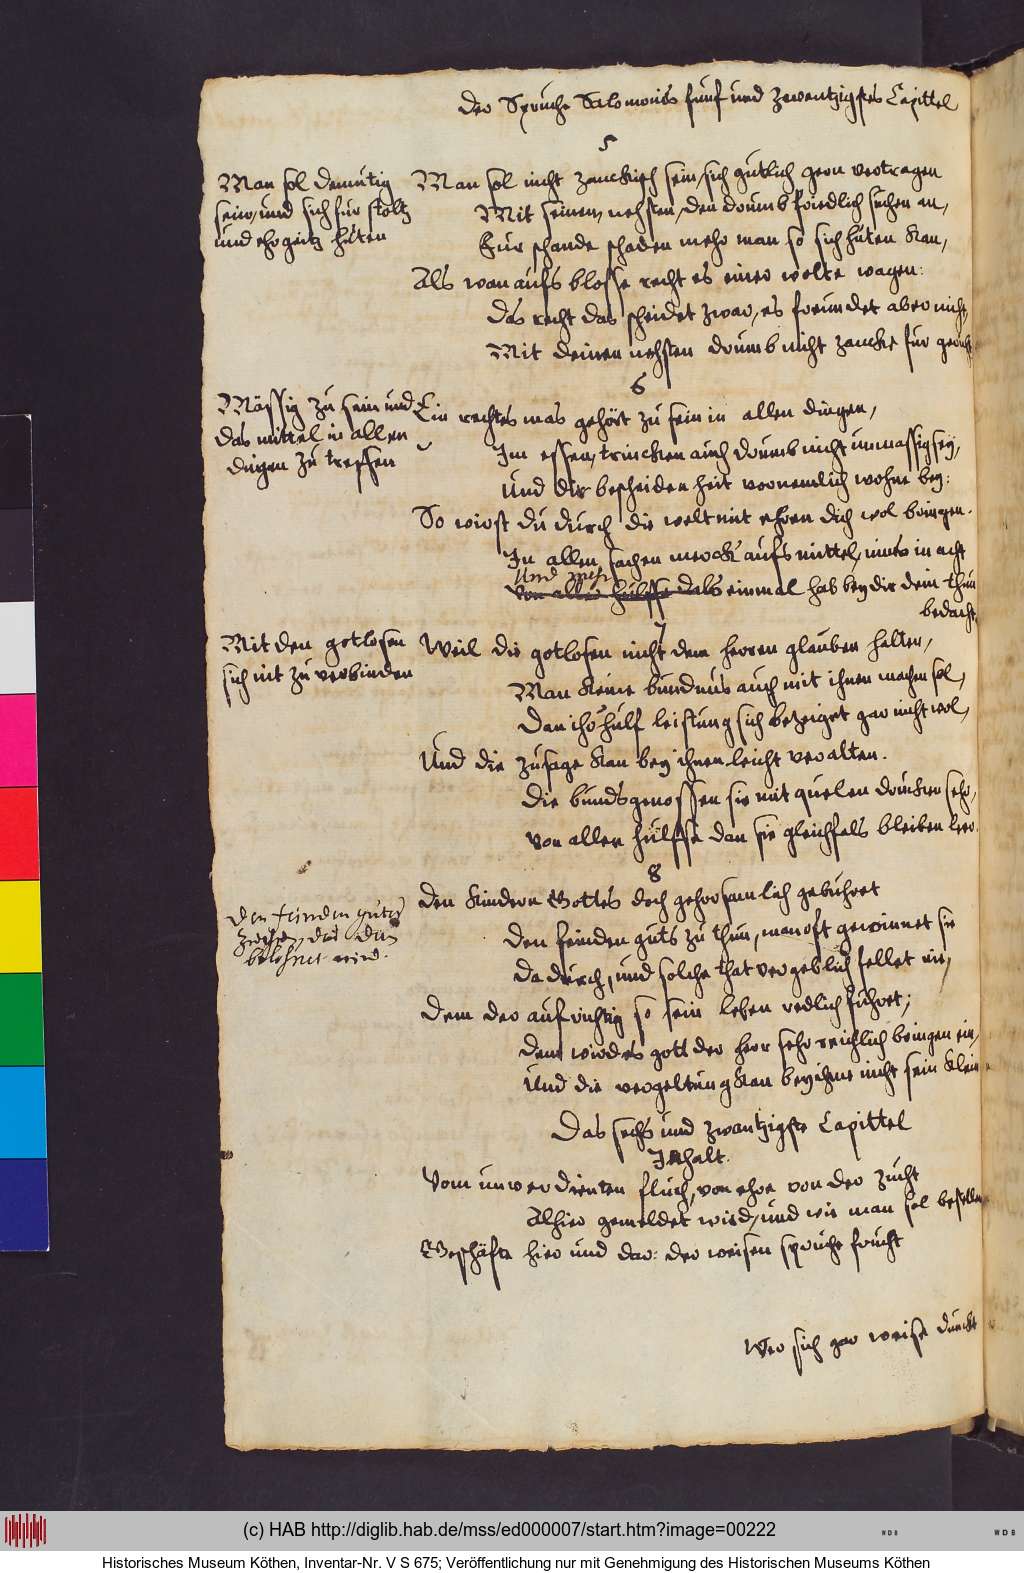 Der Spruche Salomonis funf und zwentzigstes Capittel
5
Man sol demütig
sein, und sich für stoltz
und ehrgeitz hüten
Man sol nicht zanckisch sein, sich gütlich gern vertragen
Mit seinen nehsten, den drumb friedlich suchen an,
Für schande schaden mehr man so sich hüten kan,
Als wan aufs blosse recht es einer wolte wagen:
Das recht das scheidet zwar, es freundet aber nicht,
Mit deinen nehsten drumb nicht zancke fur gericht
6
Mässig zu sein und
das mittel in allen
dingen zu treffen
Ein rechtes mas gehört zu sein in allen dingen,
Im essen, trincken auch drumb nicht unmassig sey,
Und dir bescheidenheit vornemlich wohne bey:
So wirst du durch die welt mit ehren dich wol bringen.
In allen sachen merck aufs mittel, nims in acht
Und mehr
Von aller hülffe dals einmal hab bey dir dein thun
bedacht,
7
Mit den gotlosen
sich nit zu verbinden
Weil die gotlosen nicht dem herren glauben halten,
Man keine bundnus auch mit ihnen machen sol,
Dan ihr hülf leistung sich bezeiget gar nicht wol,
Und die zusage kan bey ihnen leicht veralten.
Die bundsgenossen sie mit quelen drucken sehr,
Von aller hülffe dan sie gleichfals bleiben leer.
8
Den feinden gutes
belohnet wird.
Den kindern Gottes doch gehorsamlich gebühret
Den feinden guts zu thun, man oft gewinnet sie
Dadurch, und solche that vergeblich fellet nie,
Dem der aufrichtig so sein leben redlich führet;
Dem wird es gott der herr sehr reichlich bringen ein,
Und die vergeltung kan bey ihme nicht sein klein
Das sechs und zwantzigste Capittel
Inhalt.
Vom unverdienten fluch, von ehre von der zucht
Alhier gemeldet wird, und wie man sol bestellen
Geschäfte hier und dar: der weisen spruche frucht
Wer sich gar weise dunckt
(c) HAB http://diglib.hab.de/mss/ed000007/start.htm?image=00222
WDB
WDB
Historisches Museum Köthen, Inventar-Nr. V S 675; Veröffentlichung nur mit Genehmigung des Historischen Museums Köthen